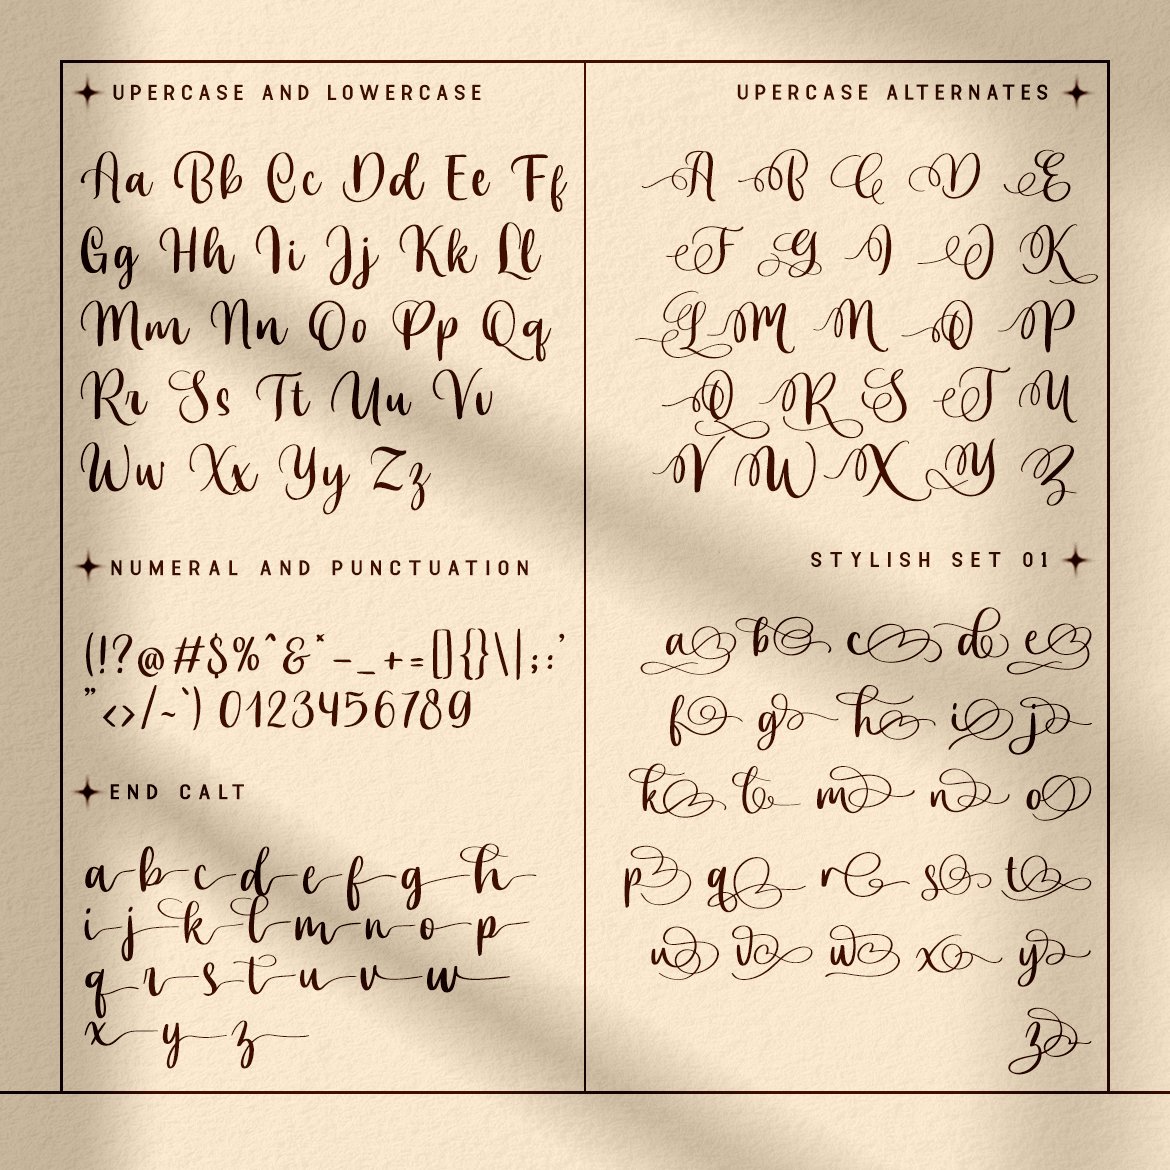 UPERCASE AND LOWERCASE
Aa Bb Cc Dd Ee Ff
Gg Hh Ii Jj Kk Ll
Mm Nn Oo Pp Qq
Rr Ss Tt Uu Vv
Ww Xx Yy Zz
NUMERAL AND PUNCTUATION
(!?@#$%^&*-_+=[]{}\|;:'
"<>/~`) 0123456789
END CALT
a b c d e f g h
i j k l m n o p
q r s t u v w
x y z
UPERCASE ALTERNATES
A B C D E
F G I J K
L M N O P
Q R S T U
V W X Y Z
STYLISH SET 01
a b c d e
f g h i j
k l m n o
p q r s t
u v w x y
z